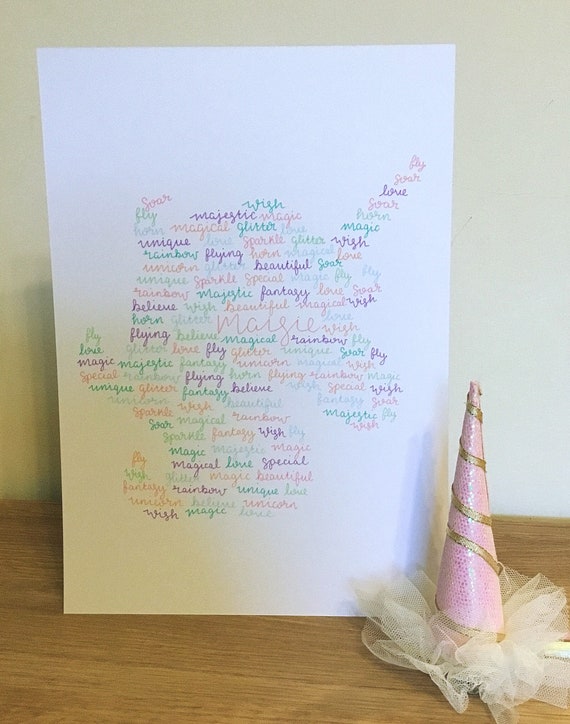 fly
soar
love
soar wish soar
fly majestic magic horn
horn magical glitter love magic
unique love sparkle glitter wish
rainbow flying horn magical love
unicorn glitter beautiful soar
unique sparkle special magic fly fly
rainbow majestic fantasy love soar
believe wish beautiful magical wish
horn glitter Maisie love
wish
fly flying believe magical rainbow fly
love glitter love fly glitter unique soar fly
magic majestic fantasy unicorn magical wish
special rainbow flying horn flying rainbow magic
unique glitter fantasy believe wish special wish
unicorn wish beautiful fantasy soar
sparkle majestic fly
soar magical rainbow wish
sparkle fantasy wish fly
magic majestic magic
fly magical love special
wish glitter magic beautiful
fantasy rainbow unique love
unicorn believe unicorn
wish magic love